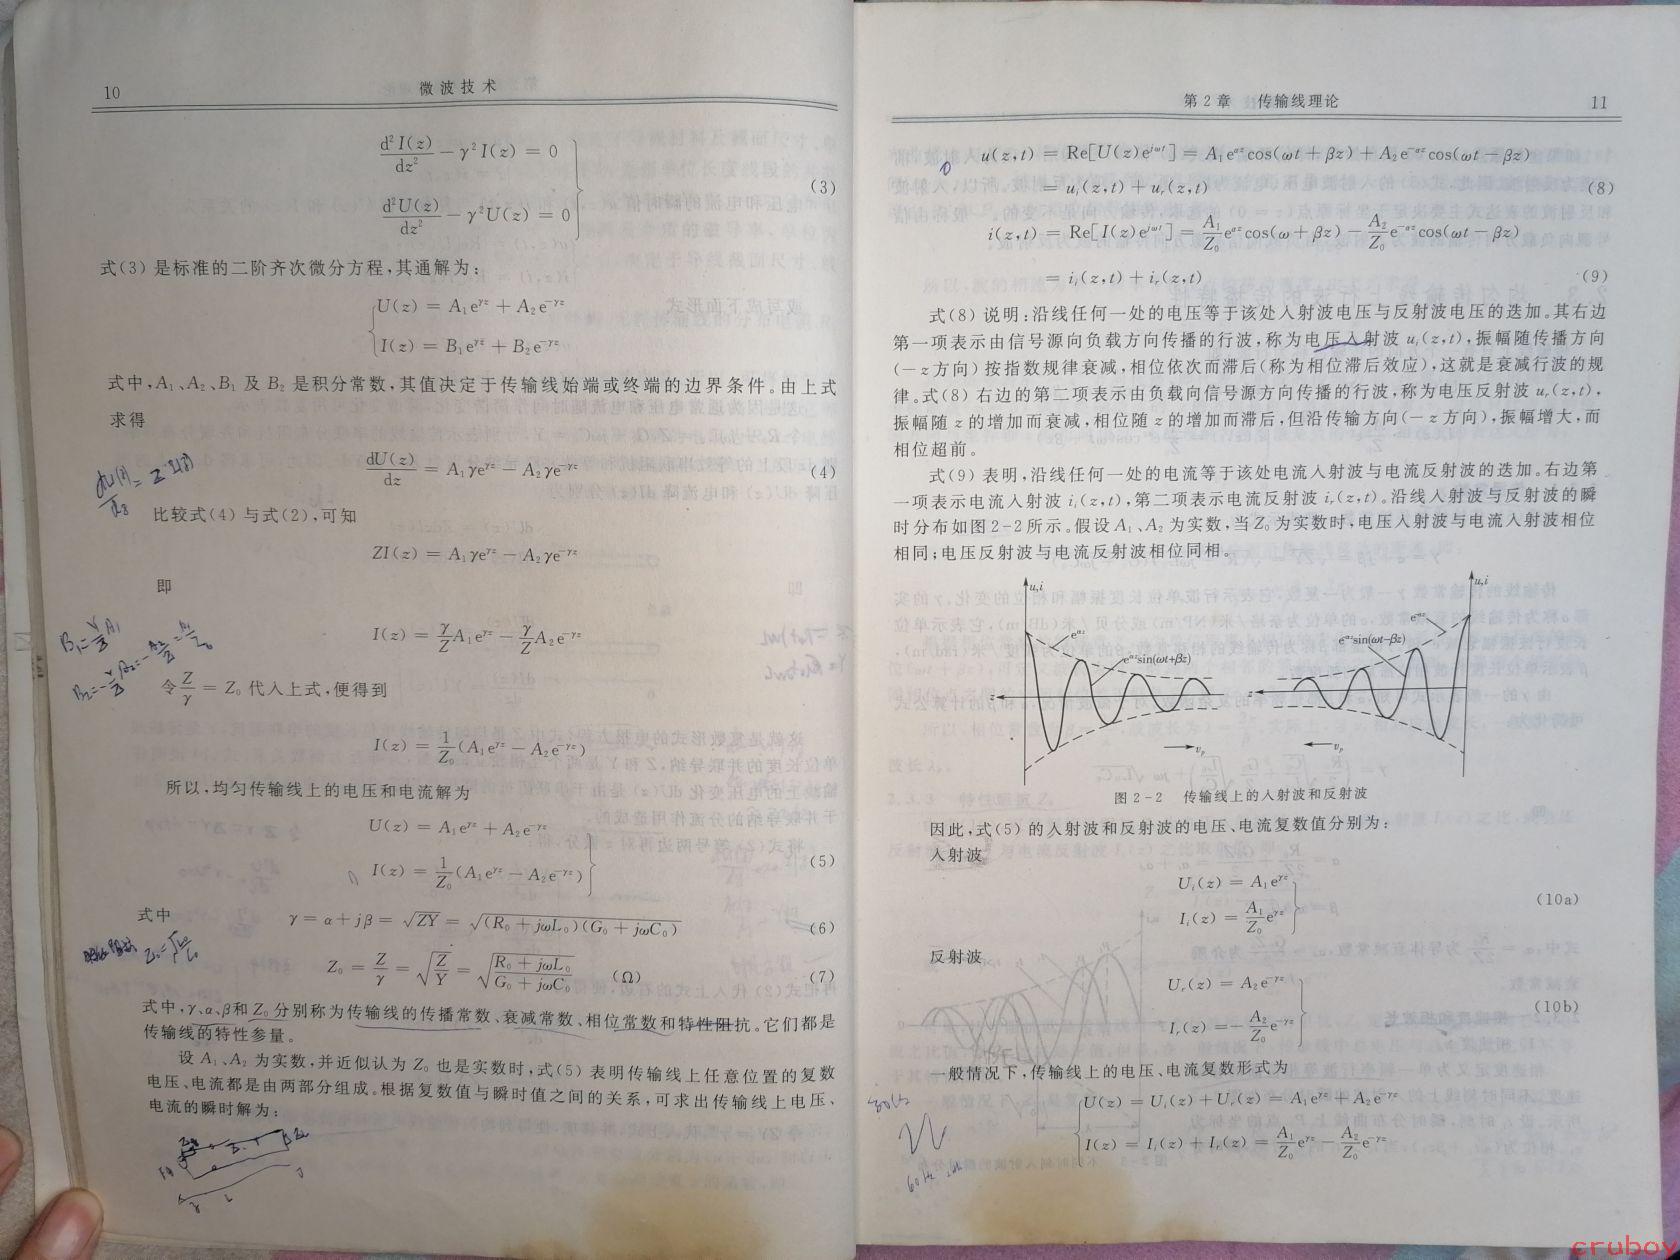 10 微波技术
d²I(z)/dz² − γ²I(z) = 0
(3)
d²U(z)/dz² − γ²U(z) = 0
式(3)是标准的二阶齐次微分方程,其通解为:
U(z) = A₁e^{γz} + A₂e^{−γz}
I(z) = B₁e^{γz} + B₂e^{−γz}
式中,A₁、A₂、B₁及B₂是积分常数,其值决定于传输线始端或终端的边界条件。由上式
求得
dU(z)/dz = A₁γe^{γz} − A₂γe^{−γz} (4)
dU(z)/dz = Z·I(z)
比较式(4)与式(2),可知
ZI(z) = A₁γe^{γz} − A₂γe^{−γz}
即
I(z) = γ/Z A₁e^{γz} − γ/Z A₂e^{−γz}
令 Z/γ = Z₀ 代入上式,便得到
I(z) = 1/Z₀ (A₁e^{γz} − A₂e^{−γz})
所以,均匀传输线上的电压和电流解为
U(z) = A₁e^{γz} + A₂e^{−γz}
(5)
I(z) = 1/Z₀ (A₁e^{γz} − A₂e^{−γz})
式中
γ = α + jβ = √ZY = √(R₀ + jωL₀)(G₀ + jωC₀) (6)
Z₀ = Z/γ = √(Z/Y) = √((R₀ + jωL₀)/(G₀ + jωC₀)) (Ω) (7)
式中,γ、α、β和Z₀分别称为传输线的传播常数、衰减常数、相位常数和特性阻抗。它们都是
传输线的特性参量。
设A₁、A₂为实数,并近似认为Z₀也是实数时,式(5)表明传输线上任意位置的复数
电压、电流都是由两部分组成。根据复数值与瞬时值之间的关系,可求出传输线上电压、
电流的瞬时解为:
第2章 传输线理论 11
u(z,t) = Re[U(z)e^{jωt}] = A₁e^{αz}cos(ωt + βz) + A₂e^{−αz}cos(ωt − βz)
= uᵢ(z,t) + uᵣ(z,t) (8)
i(z,t) = Re[I(z)e^{jωt}] = A₁/Z₀ e^{αz}cos(ω + βz) − A₂/Z₀ e^{−αz}cos(ωt − βz)
= iᵢ(z,t) + iᵣ(z,t) (9)
式(8)说明:沿线任何一处的电压等于该处入射波电压与反射波电压的迭加。其右边
第一项表示由信号源向负载方向传播的行波,称为电压入射波uᵢ(z,t),振幅随传播方向
(−z方向)按指数规律衰减,相位依次而滞后(称为相位滞后效应),这就是衰减行波的规
律。式(8)右边的第二项表示由负载向信号源方向传播的行波,称为电压反射波uᵣ(z,t),
振幅随z的增加而衰减,相位随z的增加而滞后,但沿传输方向(−z方向),振幅增大,而
相位超前。
式(9)表明,沿线任何一处的电流等于该处电流入射波与电流反射波的迭加。右边第
一项表示电流入射波iᵢ(z,t),第二项表示电流反射波iᵣ(z,t)。沿线入射波与反射波的瞬
时分布如图2-2所示。假设A₁、A₂为实数,当Z₀为实数时,电压入射波与电流入射波相位
相同;电压反射波与电流反射波相位同相。
u,i
u,i
e^{αz}
e^{αz}
e^{αz}sin(ωt+βz)
e^{αz}sin(ωt−βz)
z
z
vₚ
vₚ
图2-2 传输线上的入射波和反射波
因此,式(5)的入射波和反射波的电压、电流复数值分别为:
入射波
Uᵢ(z) = A₁e^{γz}
(10a)
Iᵢ(z) = A₁/Z₀ e^{γz}
反射波
Uᵣ(z) = A₂e^{−γz}
(10b)
Iᵣ(z) = − A₂/Z₀ e^{−γz}
一般情况下,传输线上的电压、电流复数形式为
U(z) = Uᵢ(z) + Uᵣ(z) = A₁e^{γz} + A₂e^{−γz}
I(z) = Iᵢ(z) + Iᵣ(z) = A₁/Z₀ e^{γz} − A₂/Z₀ e^{−γz}
cruboy